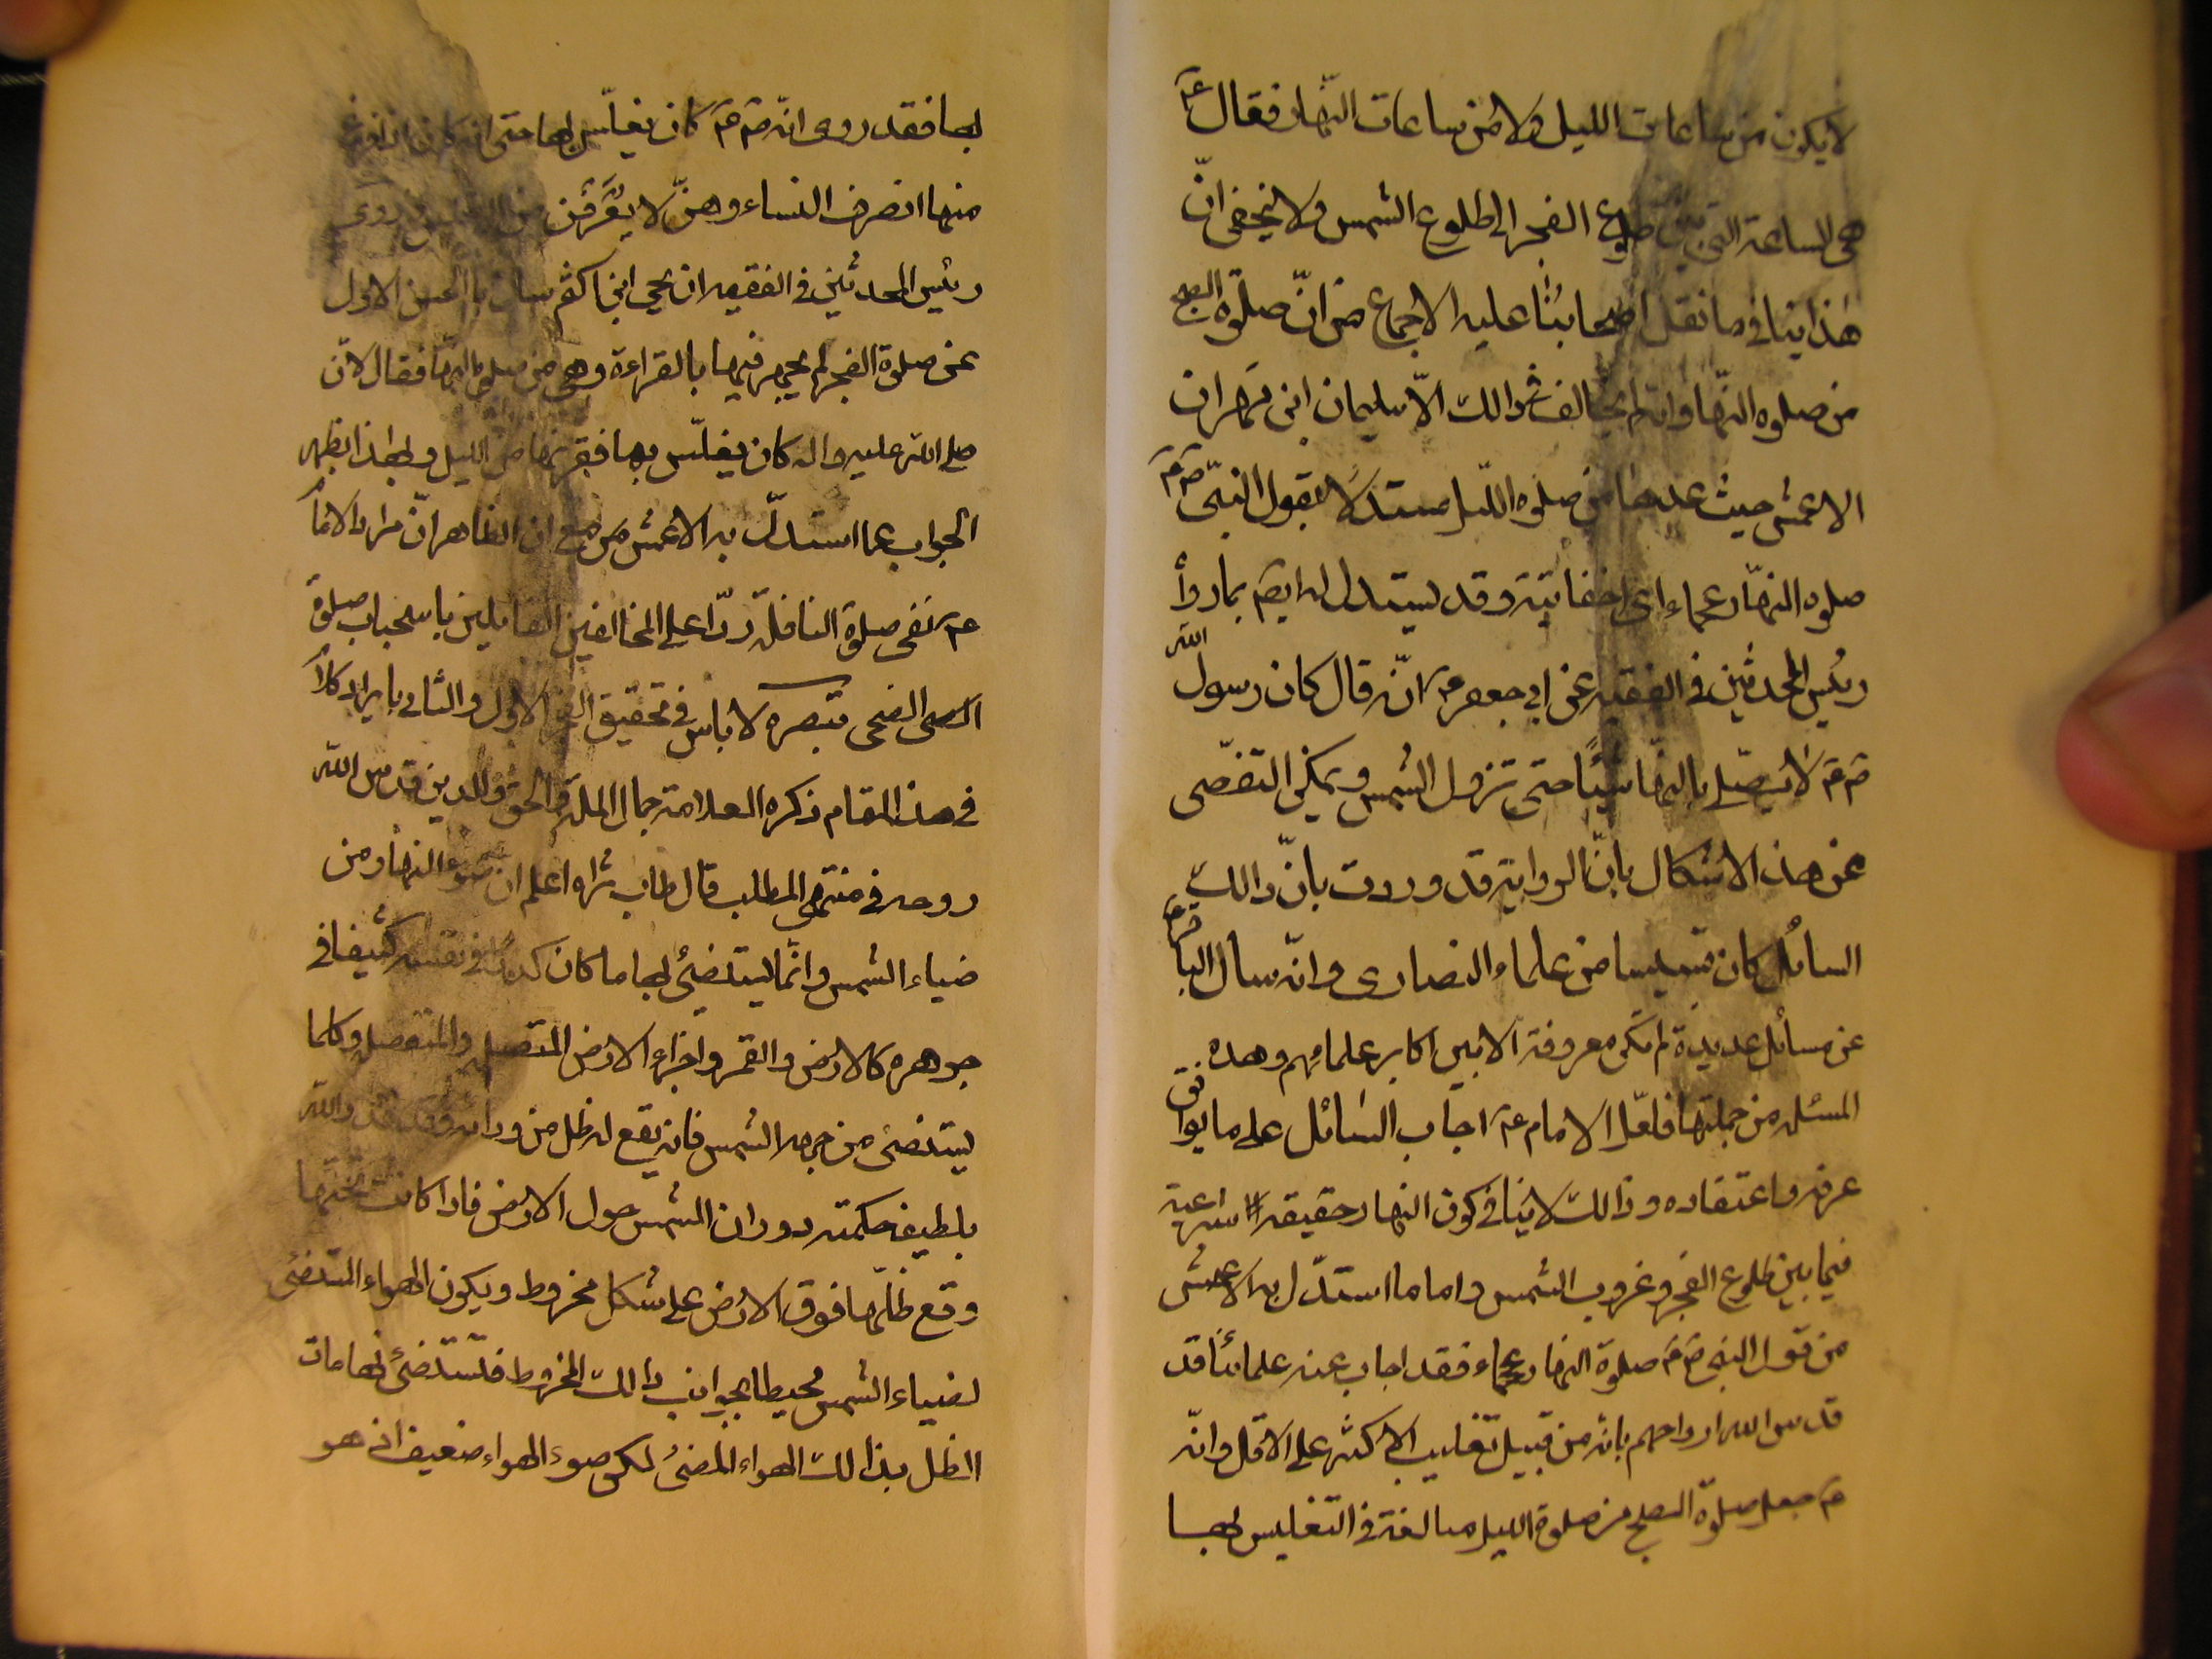 لا يكون من ساعات الليل ولا من ساعات النّهار فقال عم
هى الساعة التى بين طلوع الفجر الى طلوع الشمس ولا يخفى انّ
هذا ينافى ما نقل اصحابنا عليه الاجماع من انّ صلوة الصبح
من صلوه النّهار وانه لم يخالف فى ذالك الّا سليمان ابن مهران
الاعمش حيث عدها من صلوه اللّيل مستدلّا بقول النبىّ صم عم
صلوه النهّار عجماء اى اخفاتية وقد يستدل له ايضم بما رواْ
رئيس المحدثين فى الفقيه عن ابى جعفر عم انّه قال كان رسول اللّه
صم عم لا يصلّى بالنهّار شيئًا حتى تزول الشمس ويمكن التفصّى
عن هذ الاشكال بانّ الرواية قد وردت بانّ ذالك
السائل كان قسيسا من علماء النصارى وانّه سال الباقر عم
عن مسائل عديدة لم تكن معروفة الا بين اكابر علمائهم وهده
المسئله من جملتها فلعّل الامام عم اجاب السائل على ما يوافق
عرفه واعتقاده وذالك لا ينافى كون النهار حقيقه شرعية
فيما بين طلوع الفجر وغروب الشمس واما ما استدّل به الاعمش
من قول النبى صم عم صلوة النهار عجماء فقد اجاب عنه علمائنا قد
قدس الله ارواحهم بانّه من قبيل تغليب الاكثر على الاقل وانّه
عم جعل صلوة الصبح من صلوة الليل مبالغة فى التغليس بها
بها فقد روى انّه صم عم كان يغلّس بها حتى انه كان اذا فرغ
منها انصرف النساء وهنّ لا يُعْرَفْنَ من الغلس وروى
رئيس المحدثين فى الفقيه ان يحيى ابن اكثم سال ابا الحسن الاول
عن صلوة الفجر لم يجهر فيها بالقراءة وهى من صلوة النهّار فقال لانّ
صلى اللّه عليه واله كان يغلّس بها فقربها من الليل وبهذا يظهر
الجواب عما استدلّ به الاعمش مع ان الظاهر انّ مراد الامام
عم نفى صلوة النافلة ردّا على المخالفين القايلين باستحباب صلوة
الضحى تبصره لا باس فى تحقيق الفجر الاول والثانى بايراد كلام
فى هذ المقام ذكره العلامة جمال الملة والحق والدين قدس اللّه
روحه فى منتهى المطلب قال طاب ثراه اعلم ان ضوء النهار من
ضياء الشمس وانّما يستضئ بها ما كان كدرًا فى نفسه كثيفا فى
جوهره كالارض والقمر واجزاء الارض المتصله والمنفصله وكلما
يستضئ من جهة الشمس فانه يقع له ظل من ورائه وقد قدر اللّه
بلطيف حكمته دوران الشمس حول الارض فاذا كانت تحتها
وقع ظلّها فوق الارض على شكل مخروط ويكون الهواء المستضئ
لضياء الشمس محيطا بجوانب ذالك المخروط فتستضئ نهايات
الظل بذالك الهواء المضئ لكن ضوء الهواء ضعيف اذ هو